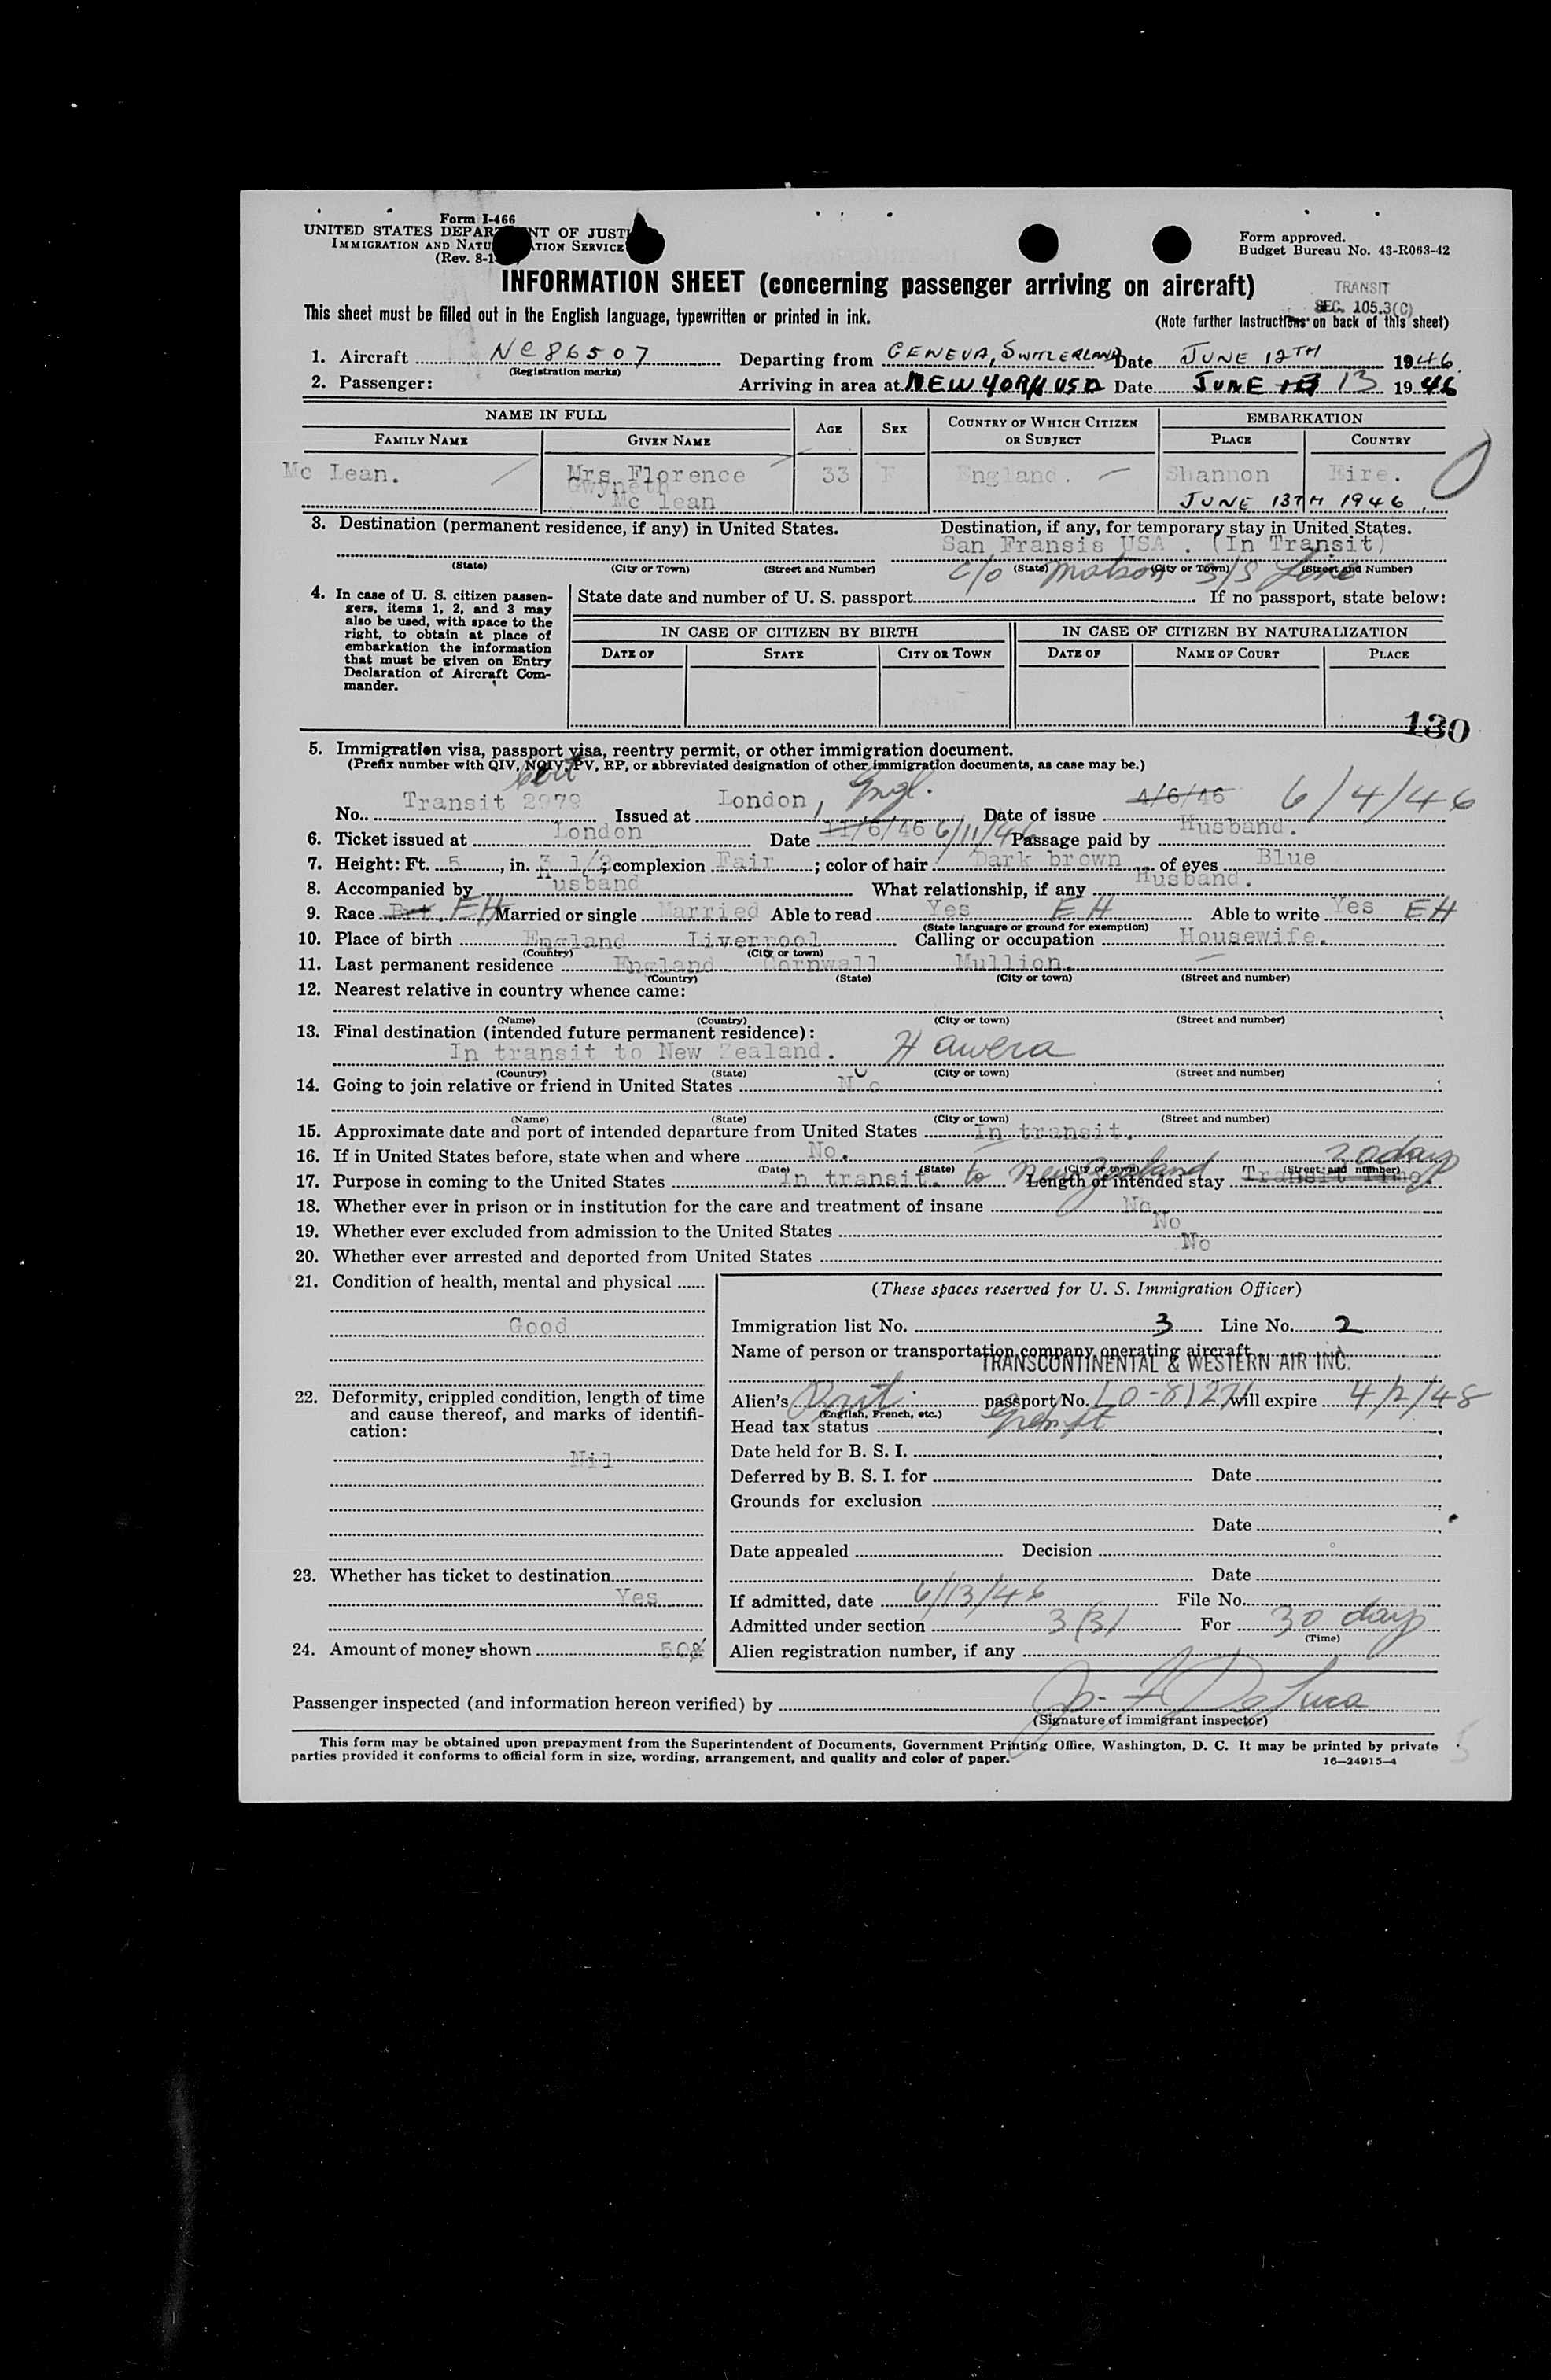 Form I-466
UNITED STATES DEPAR NT OF JUSTI
IMMIGRATION AND NATU ATION SERVICE
(Rev. 8-1
Form approved.
Budget Bureau No. 43-R063-42
INFORMATION SHEET (concerning passenger arriving on aircraft)
TRANSIT
SEC. 105.3(C)
This sheet must be filled out in the English language, typewritten or printed in ink.
(Note further Instructions on back of this sheet)
1. Aircraft NC86507 Departing from GENEVA, SWITZERLAND Date JUNE 12TH 1946
(Registration marks)
2. Passenger: Arriving in area at NEW YORK USA Date JUNE 13 1946
NAME IN FULL AGE SEX COUNTRY OF WHICH CITIZEN OR SUBJECT EMBARKATION
FAMILY NAME GIVEN NAME PLACE COUNTRY
Mc Lean. Mrs Florence 33 F England. Shannon Eire.
Gwyneth
Mc lean JUNE 13TH 1946
3. Destination (permanent residence, if any) in United States. Destination, if any, for temporary stay in United States.
San Fransis USA . (In Transit)
(State) (City or Town) (Street and Number) (State) (City or Town) (Street and Number)
c/o Matson S/S Line
4. In case of U. S. citizen passen-
gers, items 1, 2, and 3 may
also be used, with space to the
right, to obtain at place of
embarkation the information
that must be given on Entry
Declaration of Aircraft Com-
mander.
State date and number of U. S. passport If no passport, state below:
IN CASE OF CITIZEN BY BIRTH IN CASE OF CITIZEN BY NATURALIZATION
DATE OF STATE CITY OR TOWN DATE OF NAME OF COURT PLACE
130
5. Immigration visa, passport visa, reentry permit, or other immigration document.
(Prefix number with QIV, NQIV, PV, RP, or abbreviated designation of other immigration documents, as case may be.)
cert
No. Transit 2979 Issued at London, Engl. Date of issue 4/6/46 6/4/46
6. Ticket issued at London Date 11/6/46 6/11/46 Passage paid by Husband.
7. Height: Ft. 5, in. 3 1/2; complexion Fair; color of hair Dark brown of eyes Blue
8. Accompanied by Husband What relationship, if any Husband.
9. Race Brt. EH Married or single Married Able to read Yes EH Able to write Yes EH
(State language or ground for exemption)
10. Place of birth England Liverpool Calling or occupation Housewife.
(Country) (City or town)
11. Last permanent residence England Cornwall Mullion.
(Country) (State) (City or town) (Street and number)
12. Nearest relative in country whence came:
(Name) (Country) (City or town) (Street and number)
13. Final destination (intended future permanent residence):
In transit to New Zealand. Hawera
(Country) (State) (City or town) (Street and number)
14. Going to join relative or friend in United States No
(Name) (State) (City or town) (Street and number)
15. Approximate date and port of intended departure from United States In transit.
16. If in United States before, state when and where No.
(Date) (State) (City or town) (Street and number)
20 days
17. Purpose in coming to the United States In transit. to New Zealand Length of intended stay Transit Time.
18. Whether ever in prison or in institution for the care and treatment of insane No
19. Whether ever excluded from admission to the United States No
20. Whether ever arrested and deported from United States No
21. Condition of health, mental and physical
Good
22. Deformity, crippled condition, length of time
and cause thereof, and marks of identifi-
cation:
Nil
23. Whether has ticket to destination
Yes
24. Amount of money shown 50$
(These spaces reserved for U. S. Immigration Officer)
Immigration list No. 3 Line No. 2
Name of person or transportation company operating aircraft
TRANSCONTINENTAL & WESTERN AIR INC.
Alien's Brit. passport No. LO-81271 will expire 4/2/48
(English, French, etc.)
Head tax status Exempt
Date held for B. S. I.
Deferred by B. S. I. for Date
Grounds for exclusion
Date
Date appealed Decision
Date
If admitted, date 6/13/46 File No.
Admitted under section 3(3) For 30 days
(Time)
Alien registration number, if any
Passenger inspected (and information hereon verified) by
(Signature of immigrant inspector)
This form may be obtained upon prepayment from the Superintendent of Documents, Government Printing Office, Washington, D. C. It may be printed by private
parties provided it conforms to official form in size, wording, arrangement, and quality and color of paper.
16—24915-4